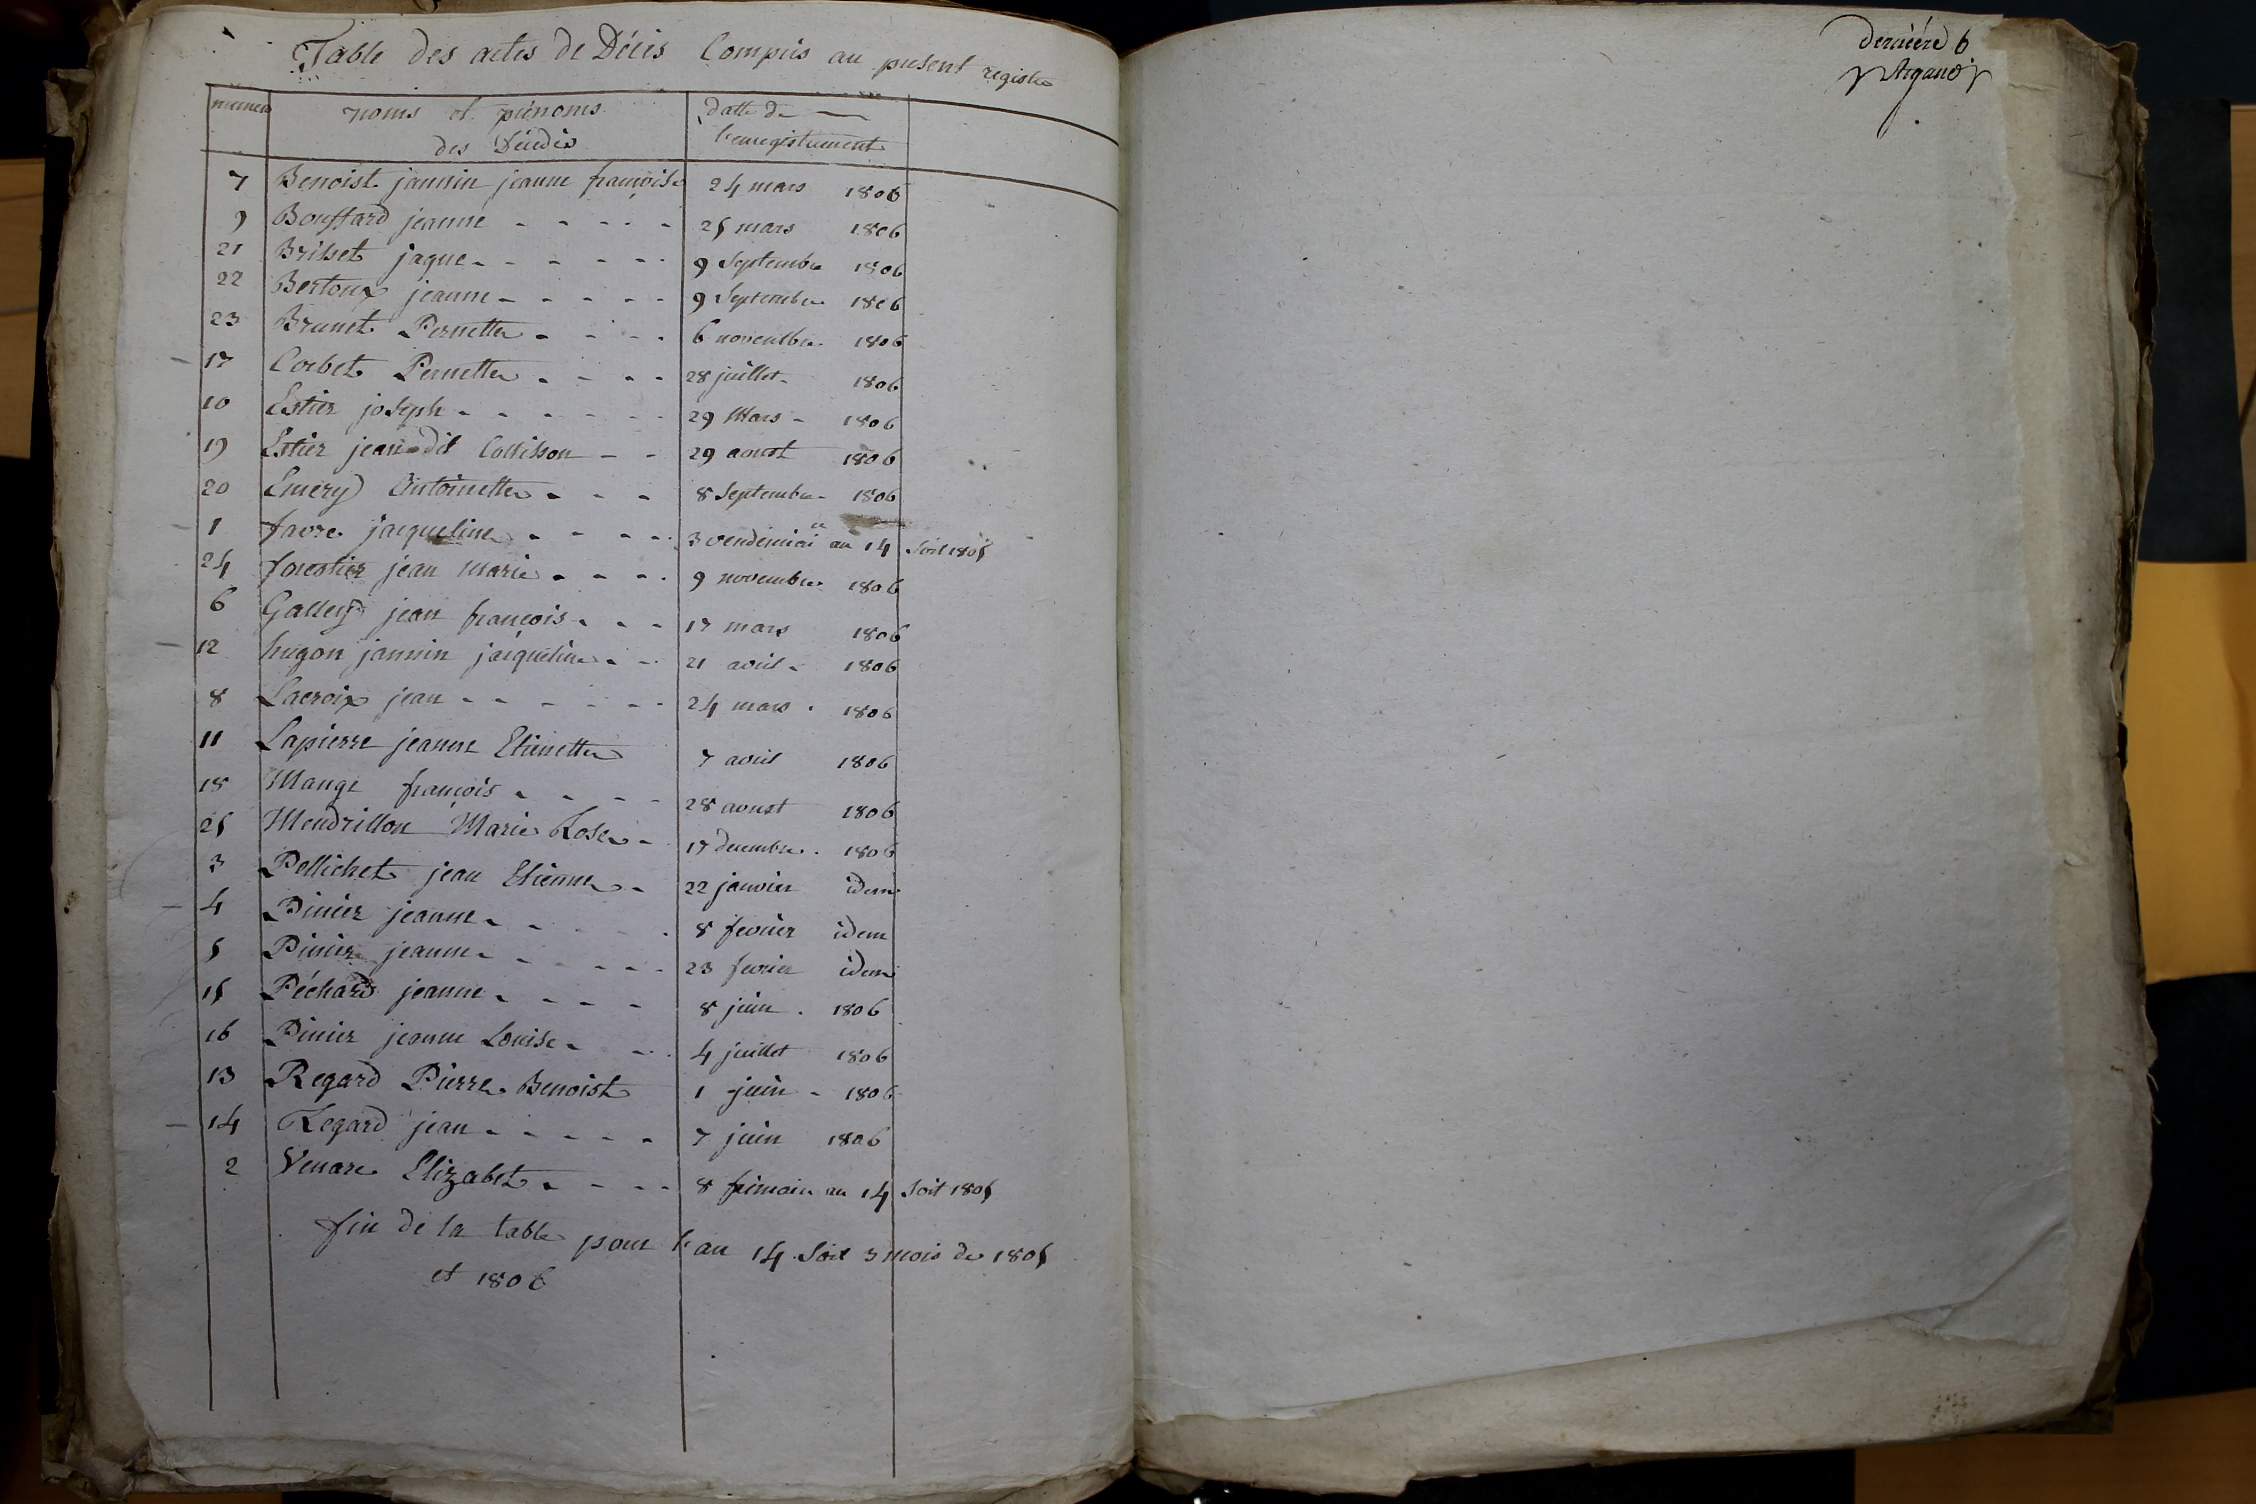 Table des actes de Décès Compris au present registre
numero noms et prénoms datte de
des Décédés l'enregistrement
7 Benoist jannin jeanne françoise 24 mars 1806
9 Bouffard jeanne 25 mars 1806
21 Brilset jaque 9 Septembre 1806
22 Bertoux jeanne 9 Septembre 1806
23 Brunet Pernette 6 novembre 1806
17 Corbet Pernette 28 juillet 1806
10 Estier joseph 29 Mars 1806
19 Estier jean dit Collisson 29 aoust 1806
20 Emery Antoinette 8 Septembre 1806
1 favre jacqueline 3 vendemiaire an 14 Soit 1805
24 forestier jean marie 9 novembre 1806
6 Galley jean françois 17 mars 1806
12 hugon jannin jacqueline 21 avril 1806
8 Lacroix jean 24 mars 1806
11 Lapierre jeanne Etienette 7 avril 1806
18 Mange françois 28 aoust 1806
25 Mendrillon Marie Rose 17 decembre 1806
3 Pellichet jean Etienne 22 janvier idem
4 Pinier jeanne 8 fevrier idem
5 Pinier jeanne 23 fevrier idem
15 Péchard jeanne 8 juin 1806
16 Pinier jeanne Louise 4 juillet 1806
13 Regard Pierre Benoist 1 juin 1806
14 Regard jean 7 juin 1806
2 Venare Elizabet 8 frimaire an 14 Soit 1805
fin de la table pour l'an 14 Soit 3 mois de 1805
et 1806
derniére 6